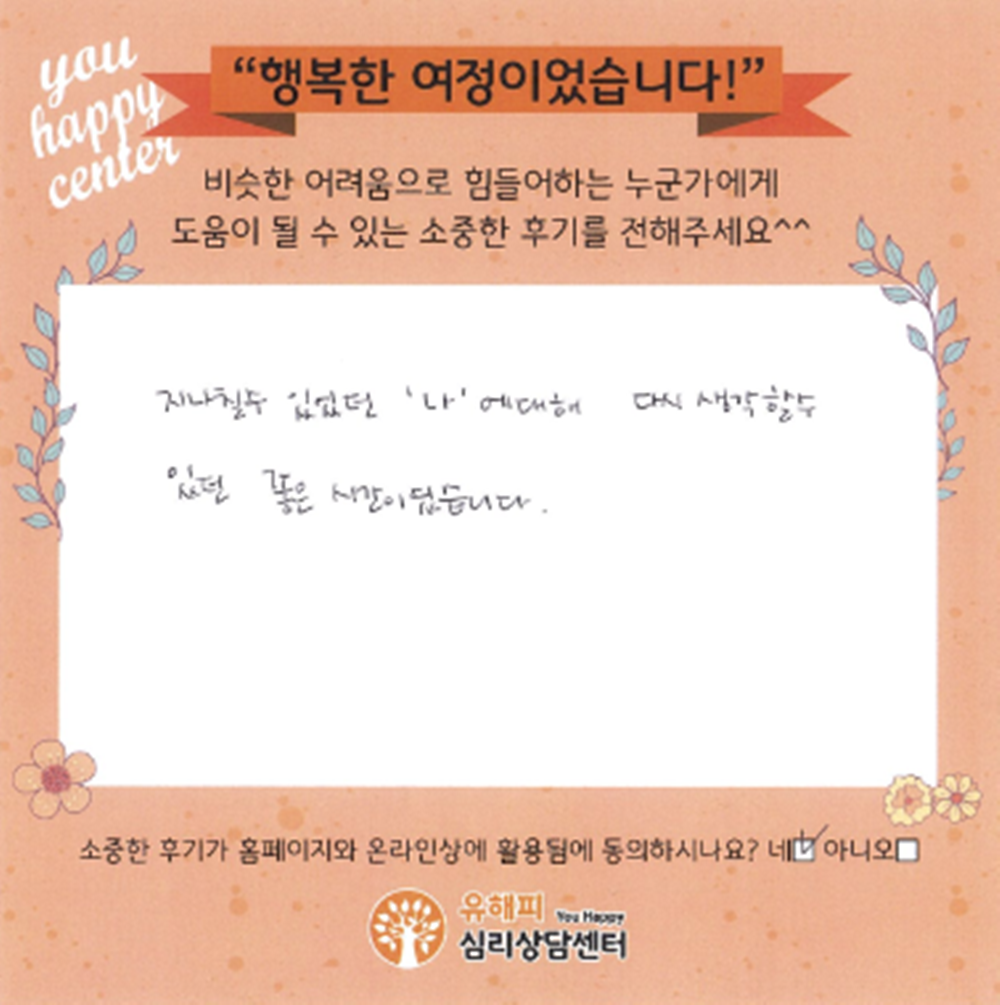 you
happy
center
“행복한 여정이었습니다!”
비슷한 어려움으로 힘들어하는 누군가에게
도움이 될 수 있는 소중한 후기를 전해주세요^^
지나칠수 있었던 '나'에대해 다시 생각할수
있던 좋은 시간이었습니다.
소중한 후기가 홈페이지와 온라인상에 활용됨에 동의하시나요? 네 아니오
유해피 You Happy
심리상담센터